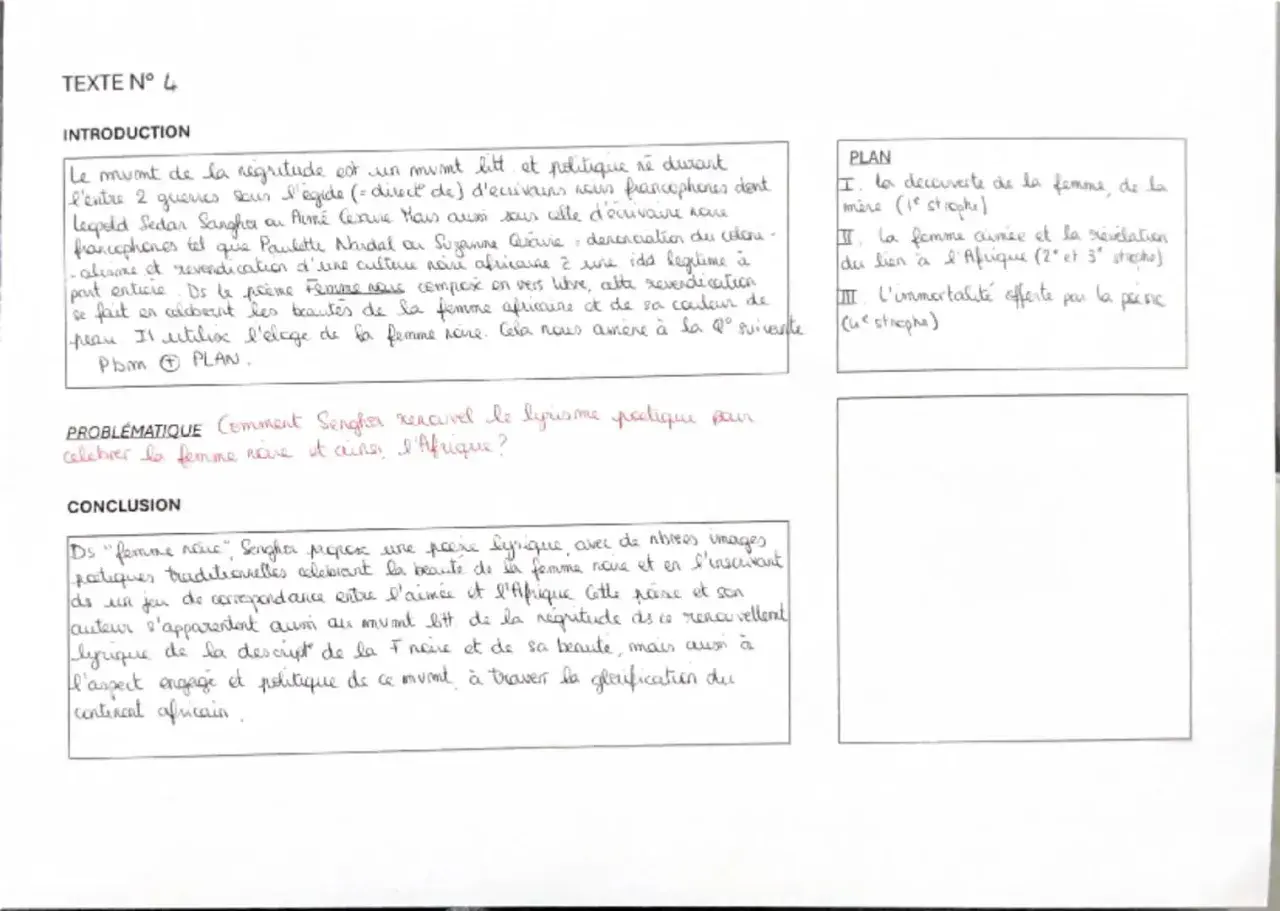 TEXTE N° 4
INTRODUCTION
Le mvmt de la négritude est un mvmt litt. et politique né durant
l'entre 2 guerres sous l'égide (= direct° de) d'écrivains noirs francophones dont
Leopold Sedar Sanghor ou Aimé Cesaire Mais aussi sous celle d'écrivaine noire
francophones tel que Paulette Nardal ou Suzanne : denonciation du coloni-
-alisme et revendication d'une culture noire africaine à une idd légitime à
part entière. Ds le poème Femme noire composé en vers libre, cette revendication
se fait en célébrant les beautés de la femme africaine et de sa couleur de
peau Il utilise l'éloge de la femme noire. Cela nous amène à la Q° suivante
Pbm ⊕ PLAN.
PLAN
I. la découverte de la femme, de la
mère (1e strophe)
II. la femme aimée et la révélation
du lien à l'Afrique (2e et 3e strophe)
III. L'immortalité offerte par la poésie
(4e strophe)
PROBLÉMATIQUE Comment Senghor renouvel le lyrisme poétique pour
célébrer la femme noire et ainsi l'Afrique?
CONCLUSION
Ds "femme noire", Senghor propose une poésie lyrique, avec de nbrses images
poétiques traditionnelles célébrant la beauté de la femme noire et en l'inscrivant
ds un jeu de correspondance entre l'aimée et l'Afrique Cette poésie et son
auteur s'apparentent aussi au mvmt litt de la négritude ds ce renouvellemt
lyrique de la descript° de la F noire et de sa beauté, mais aussi à
l'aspect engagé et politique de ce mvmt à traver la glorification du
continent africain.